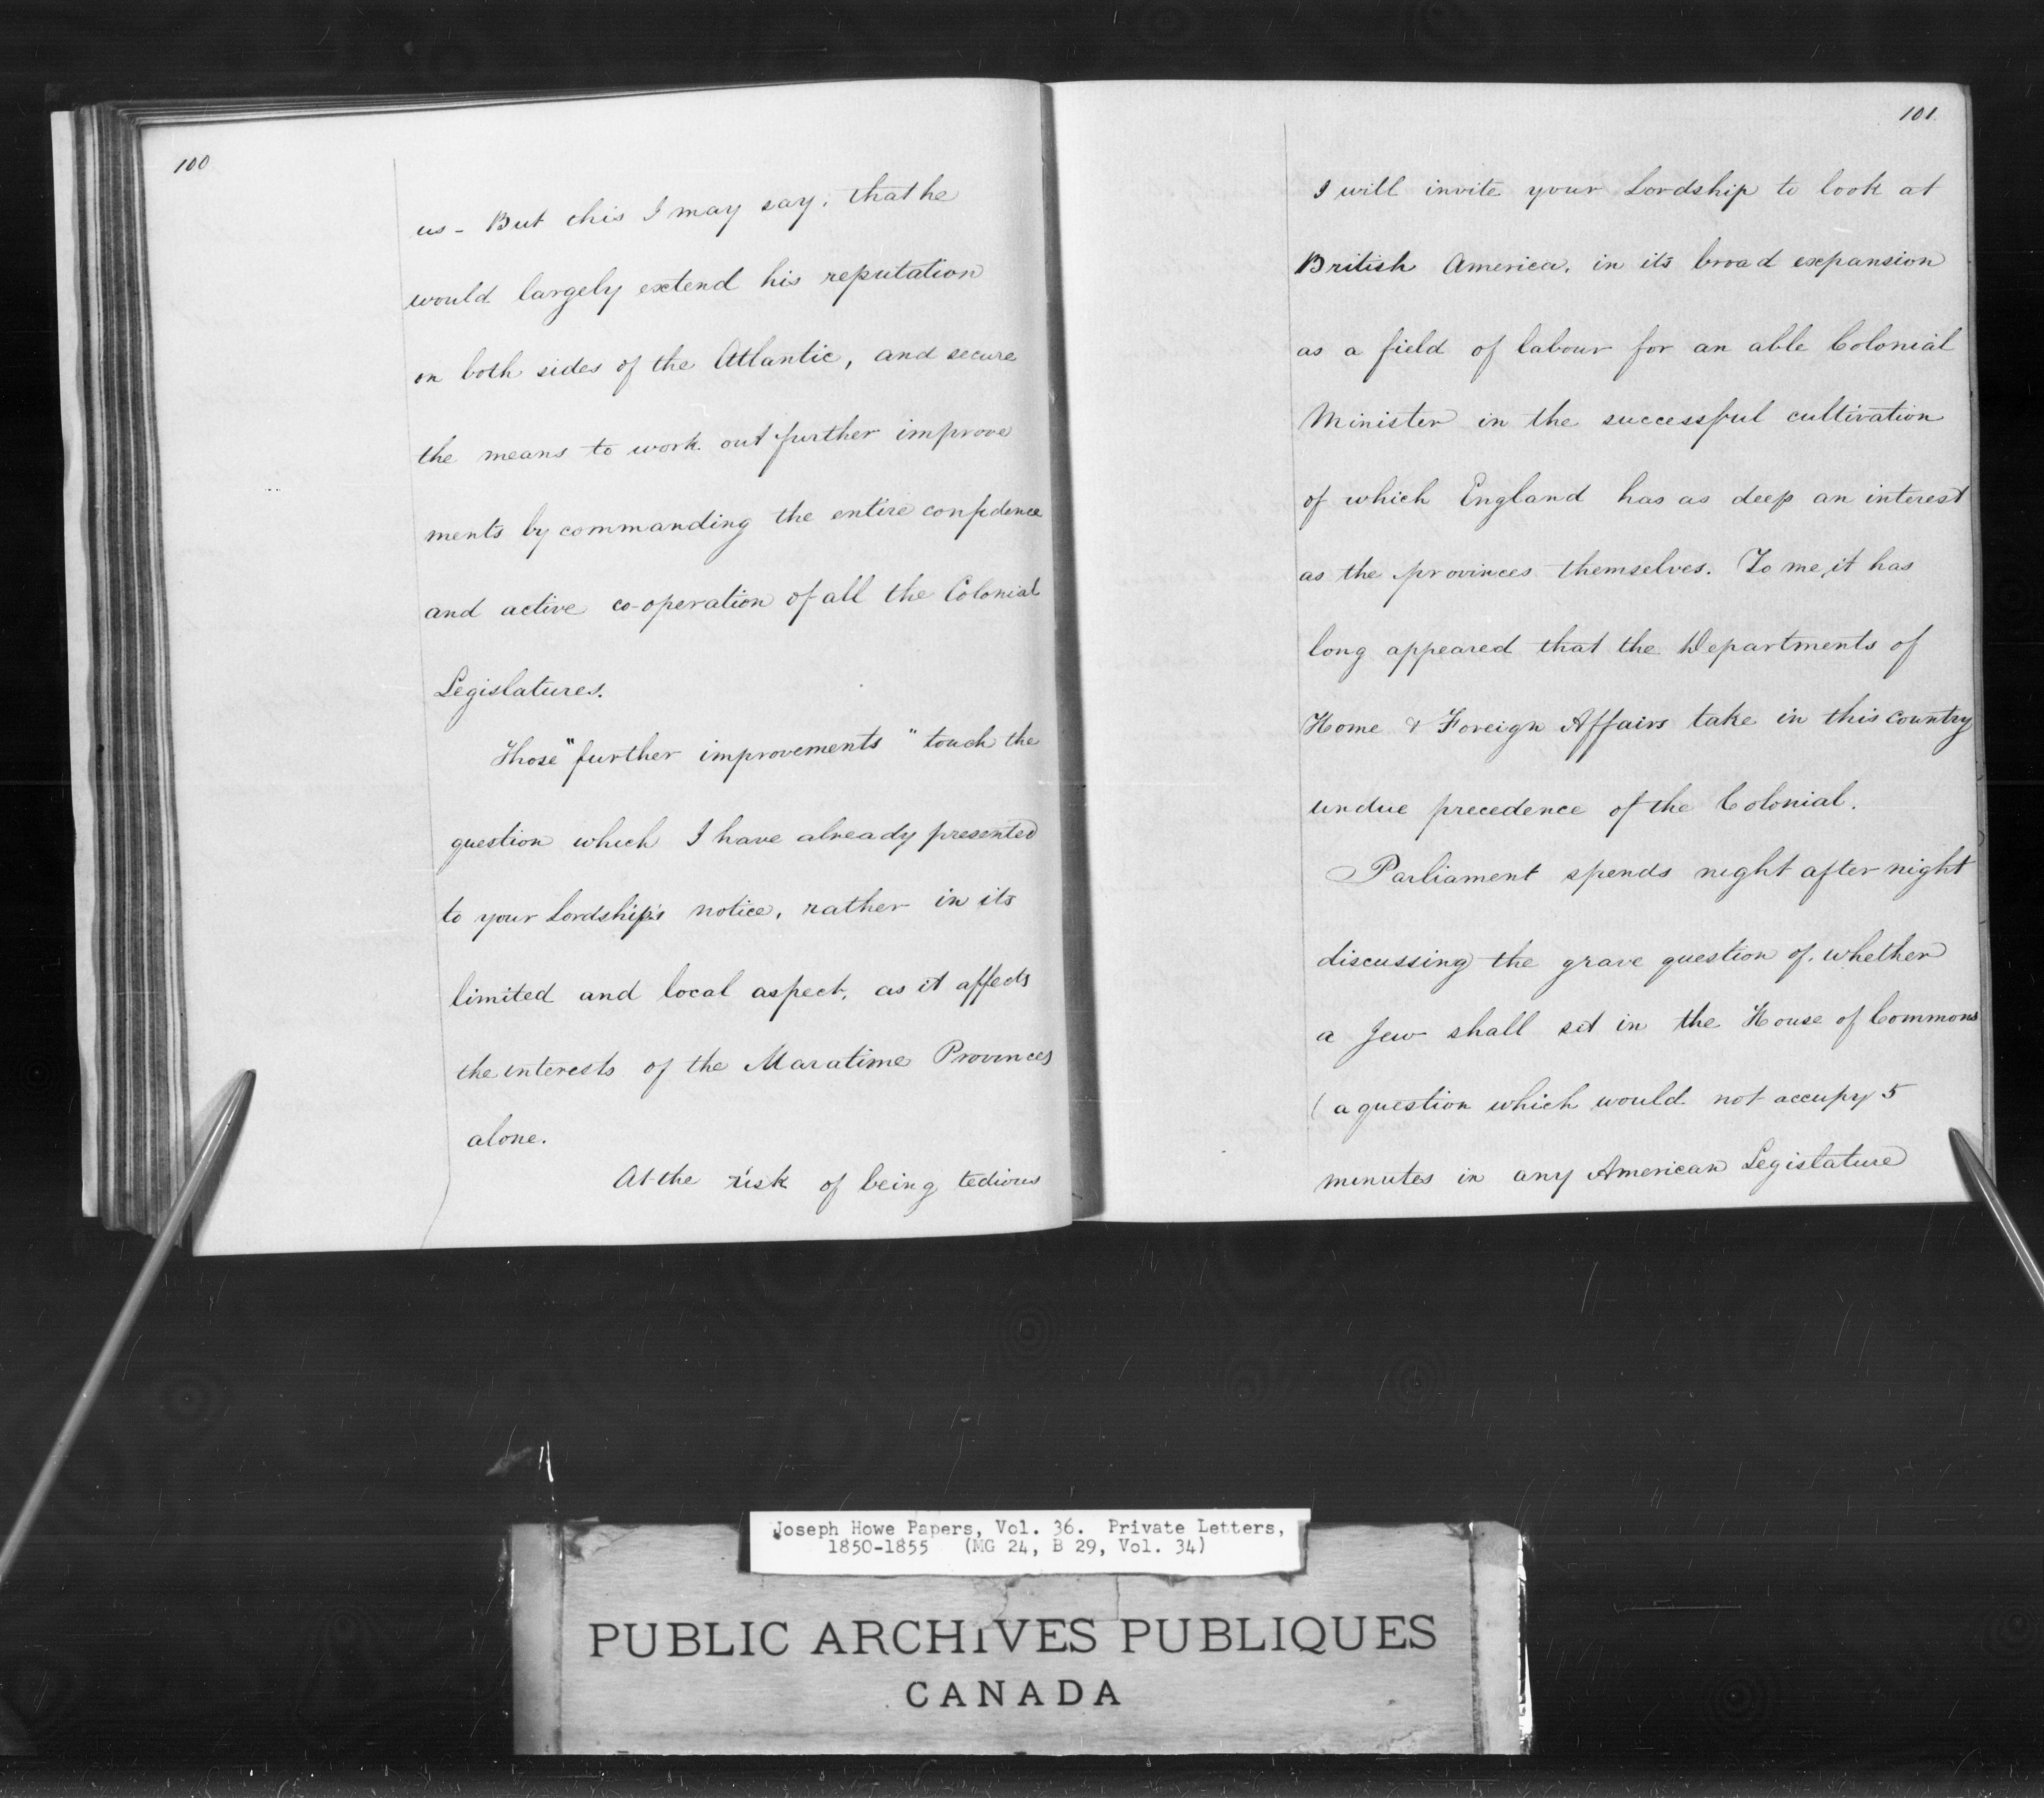 100
us - But this I may say, that he
would largely extend his reputation
on both sides of the Atlantic, and secure
the means to work out further improve
ments by commanding the entire confidence
and active co-operation of all the Colonial
Legislatures.
Those "further improvements" touch the
question which I have already presented
to your Lordship's notice, rather in its
limited and local aspect, as it affects
the interests of the Maratime Provinces
alone.
At the risk of being tedious
101
I will invite your Lordship to look at
British America, in its broad expansion
as a field of labour for an able Colonial
Minister in the successful cultivation
of which England has as deep an interest
as the provinces themselves. To me, it has
long appeared that the Departments of
Home & Foreign Affairs take in this country
undue precedence of the Colonial.
Parliament spends night after night
discussing the grave question of, whether
a Jew shall sit in the House of Commons
( a question which would not occupy 5
minutes in any American Legislature
Joseph Howe Papers, Vol. 36. Private Letters,
1850-1855 (MG 24, B 29, Vol. 34)
PUBLIC ARCHIVES PUBLIQUES
CANADA